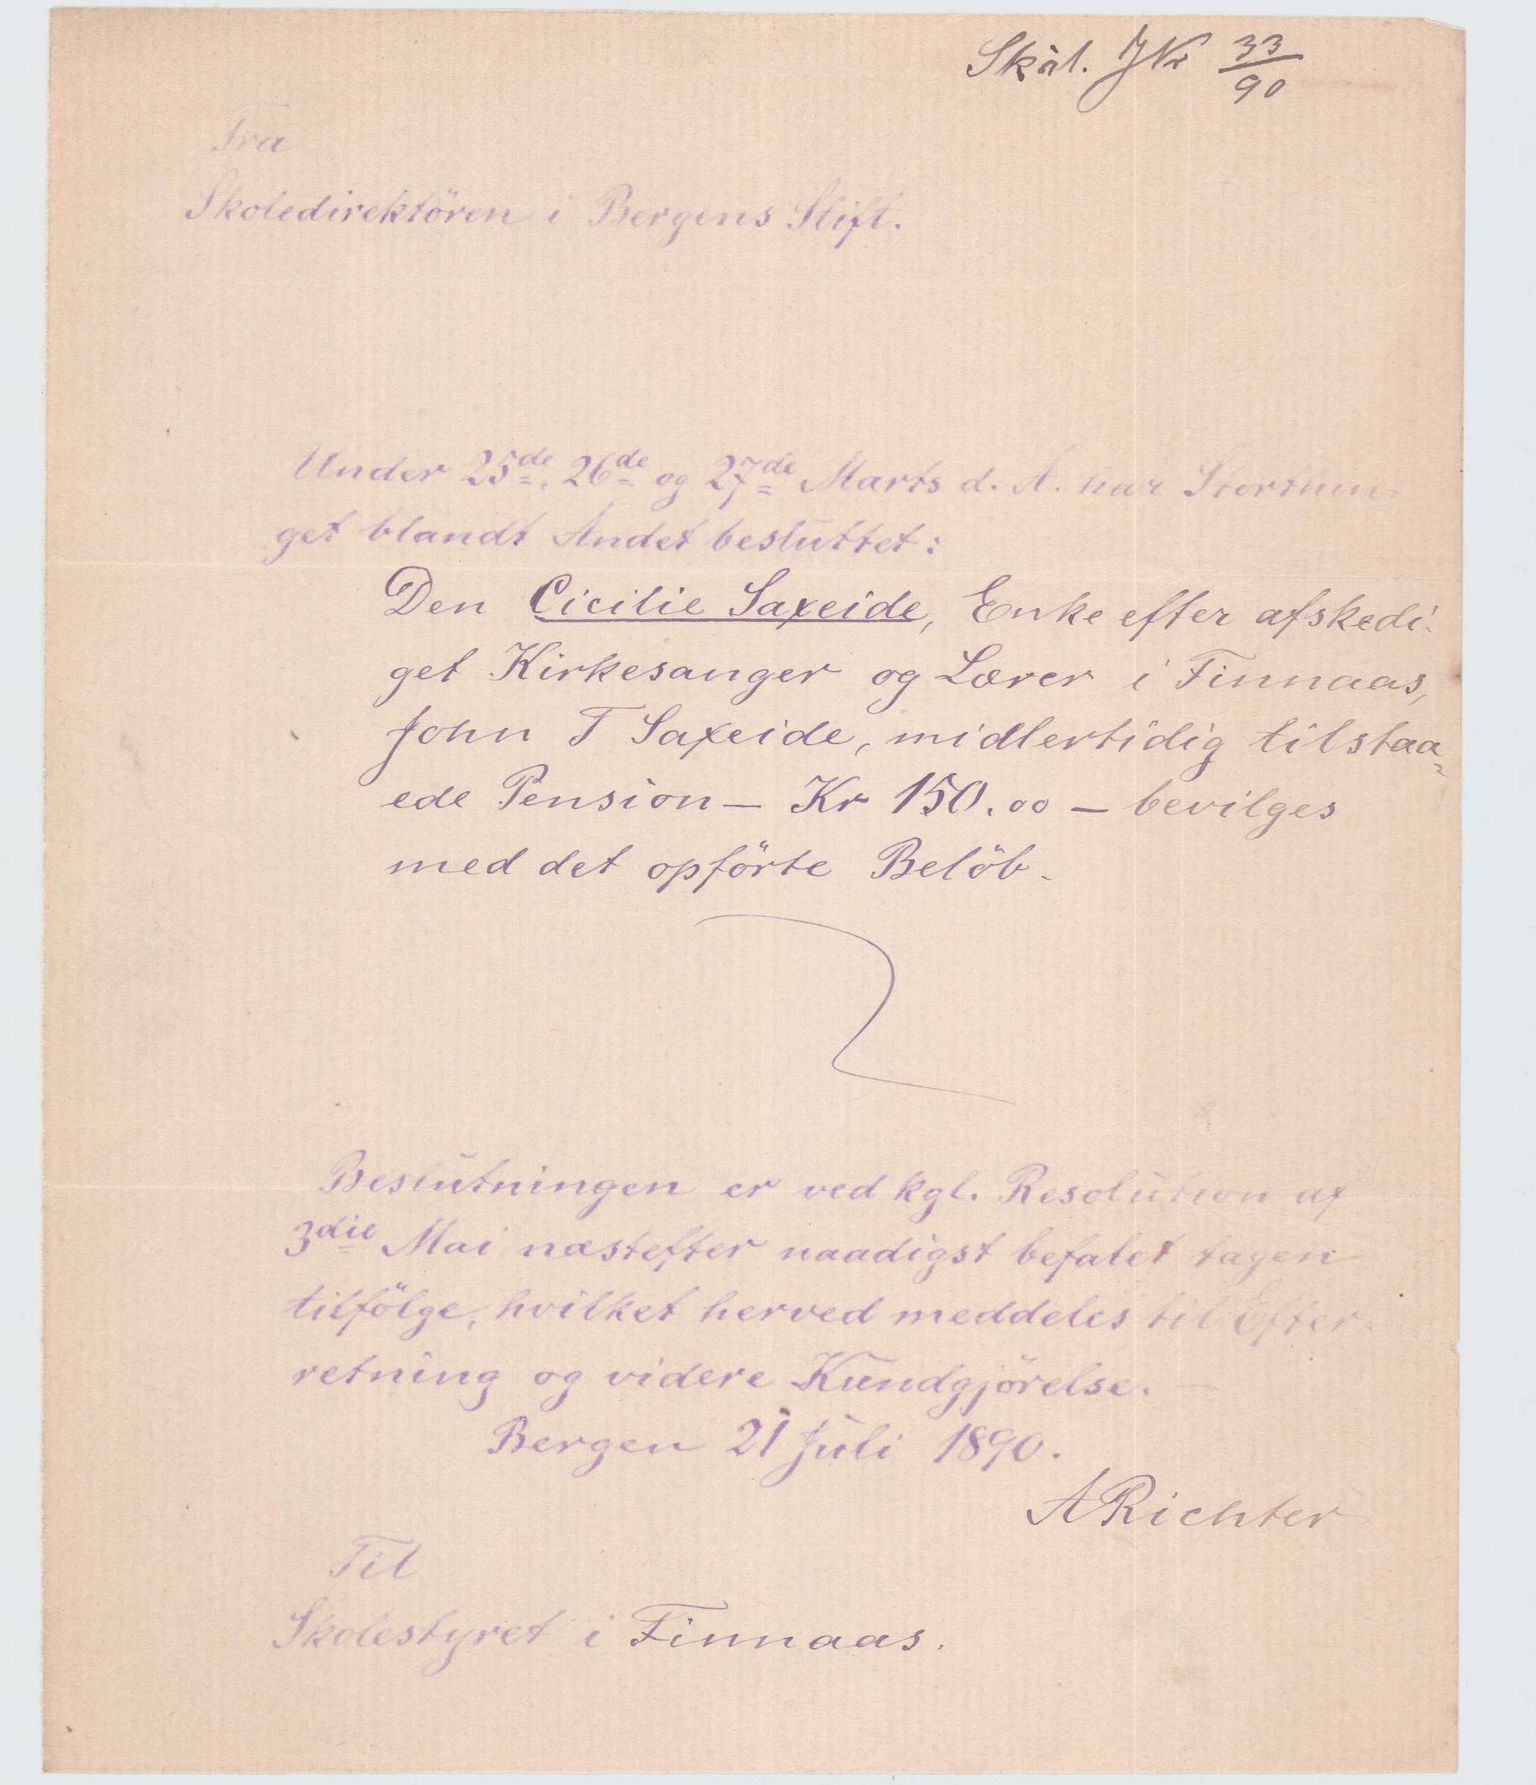 Skål. JNr 33/90
Fra
Skoledirektören i Bergens Stift.
Under 25de, 26de og 27de Marts d. A. har Storthin-
get blandt Andet besluttet:
Den Cicilie Saxeide, Enke efter afskedi-
get Kirkesanger og Lærer i Finnaas,
John T Saxeide, midlertidig tilstaa-
ede Pension – Kr 150.00 – bevilges
med det opförte Belöb.
Beslutningen er ved kgl. Resolution af
3die Mai næstefter naadigst befalet tagen
tilfölge, hvilket herved meddeles til Efter-
retning og videre Kundgjörelse.
Bergen 21 Juli 1890.
ARichter
Til
Skolestyret i Finnaas.